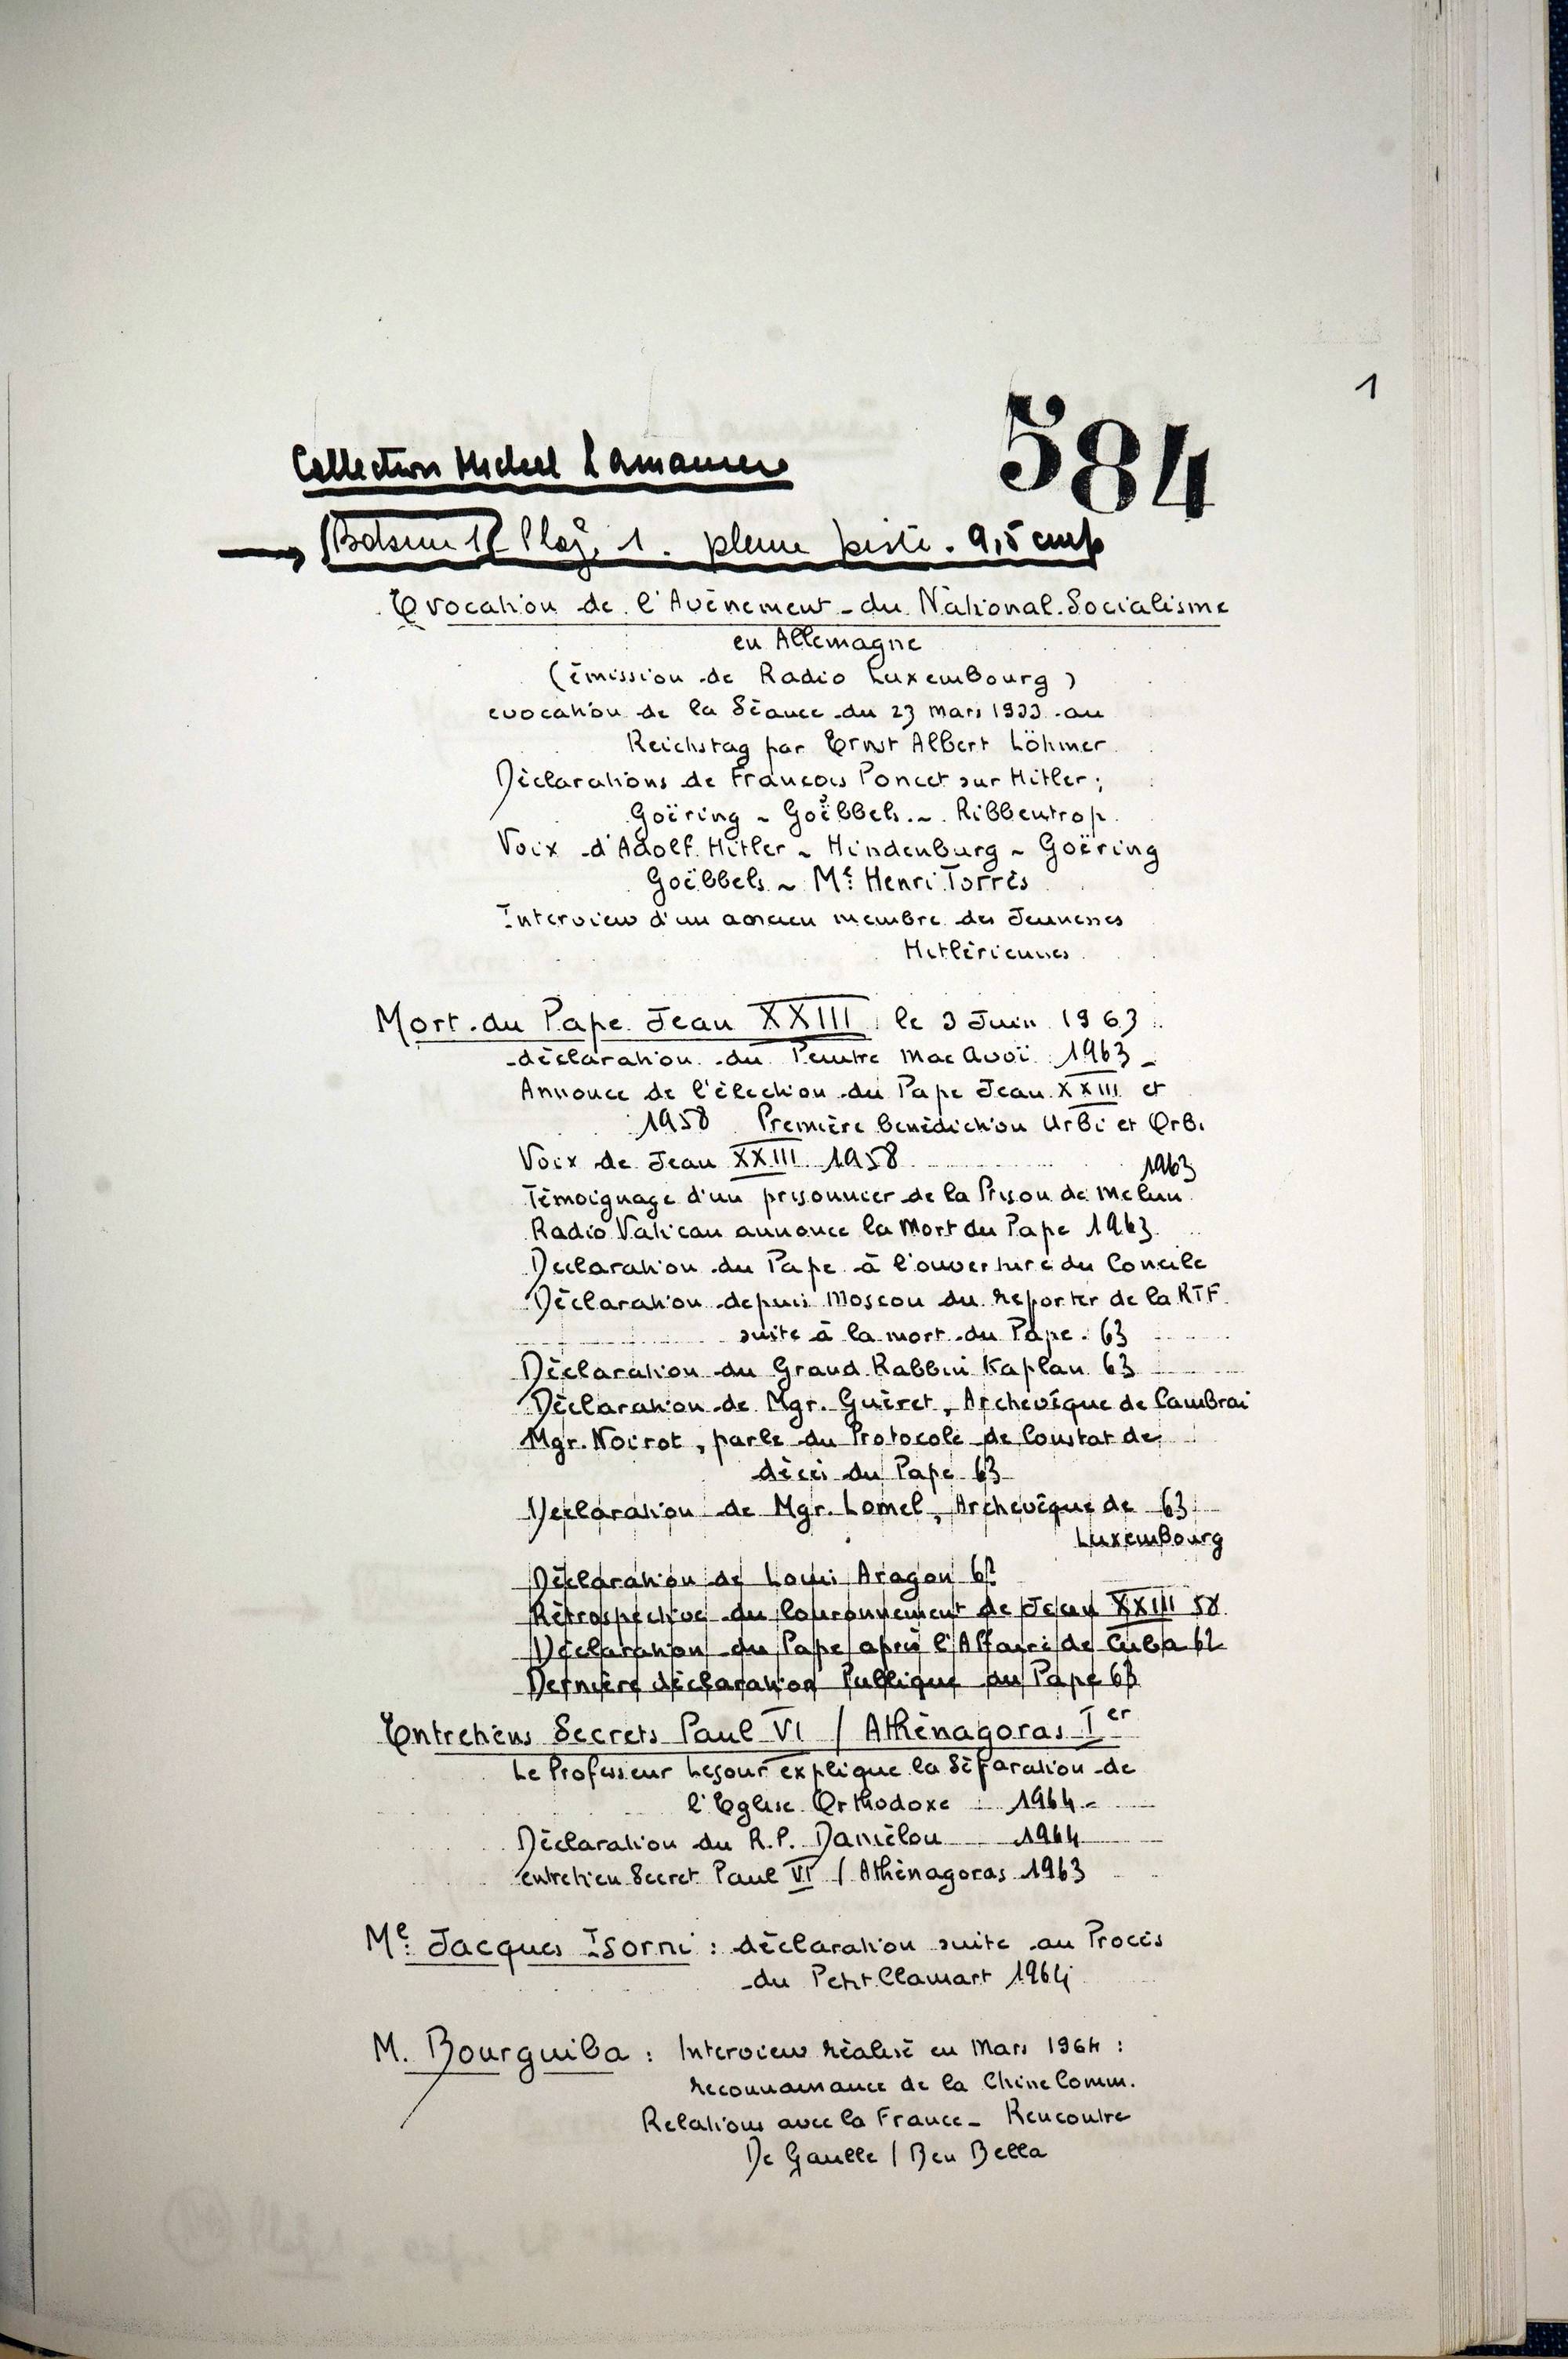 1
584
Collection Michel Lamaurere
Plage 1. pleine piste. 9,5 cm/s
Evocation de l'Avènement du National-Socialisme
en Allemagne
(émission de Radio Luxembourg)
evocation de la Séance du 23 mars 1933 au
Reichstag par Ernst Albert Löhmer
Déclarations de François Poncet sur Hitler;
Goëring ~ Goëbbels ~ Ribbentrop
Voix d'Adolf Hitler ~ Hindenburg ~ Goëring
Goëbbels ~ Me. Henri Torrès
Interview d'un ancien membre des Jeunesses
Hitlériennes
Mort du Pape Jean XXIII le 3 Juin 1963
déclaration du Peintre Mac Avoï 1963 -
Annonce de l'élection du Pape Jean XXIII et
1958 Première bénédiction Urbi et Orbi
Voix de Jean XXIII 1958
Témoignage d'un prisonnier de la Prison de Melun 1963
Radio Vatican annonce la Mort du Pape 1963
Déclaration du Pape à l'ouverture du Concile
Déclaration depuis Moscou du reporter de la RTF
suite à la mort du Pape. 63
Déclaration du Grand Rabbin Kaplan 63
Déclaration de Mgr. Guéret, Archevêque de Cambrai
Mgr. Noirot, parle du Protocole de Constat de
décès du Pape 63
Déclaration de Mgr. Lomel, Archevêque de 63
Luxembourg
Déclaration de Louis Aragon 6?
Rétrospective du Couronnement de Jean XXIII 58
Déclaration du Pape après l'Affaire de Cuba 62
Dernière déclaration Publique du Pape 63
Entretiens Secrets Paul VI / Athénagoras Ier
Le Professeur Lesour explique la Séparation de
l'Eglise Orthodoxe 1964 -
Déclaration du R.P. Daniélou 1964
entretien Secret Paul VI / Athénagoras 1963
Me. Jacques Isorni : déclaration suite au Procès
du Petit Clamart 1964
M. Bourguiba : Interview réalisé en Mars 1964 :
reconnaissance de la Chine Comm.
Relations avec la France - Rencontre
De Gaulle / Ben Bella